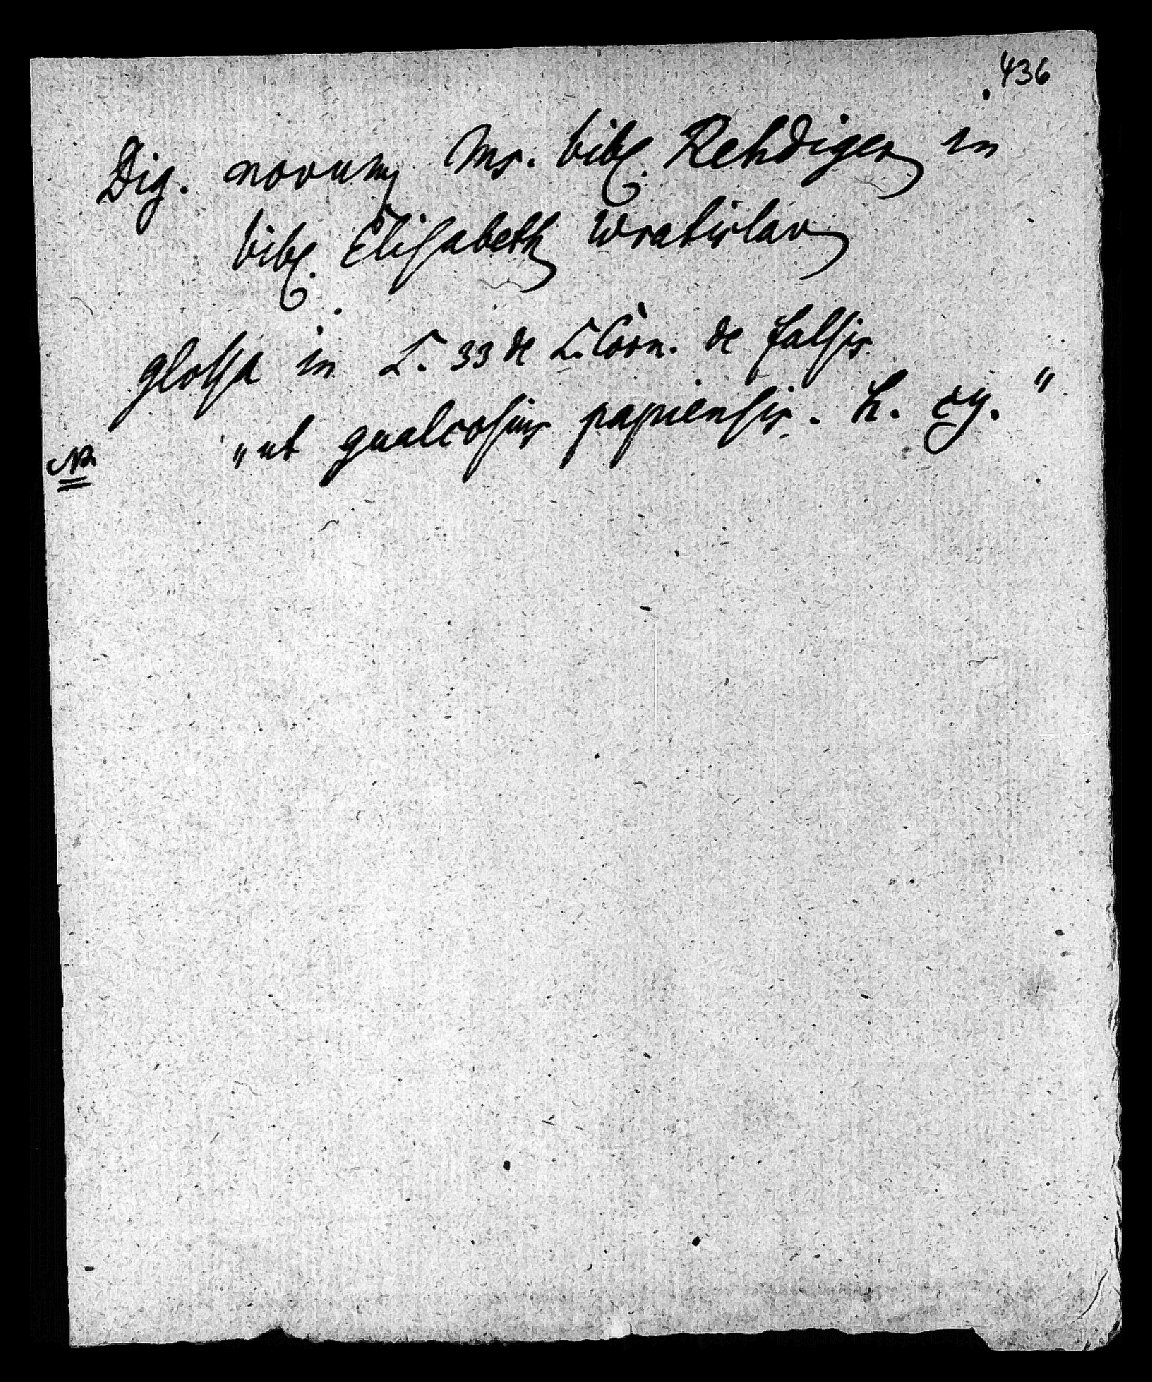 436
Dig. novum Ms. bibl. Rehdiger in
bibl. Elisabeth Wratislav
glossa in L. 33 de L. Corn. de falsis
NB. "ut gualcosius papiensis. h. cy."